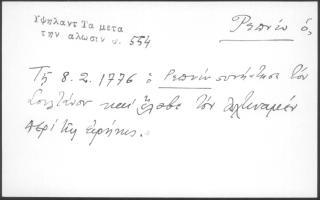 Υψηλαντ Τα μετα
την αλωσιν σ. 554
Ρεπνίν ὁ,
Τῇ 8.2.1776 ὁ Ρεπνίν συνήντησε τὸν
Σουλτάνον καὶ ἔλαβε τὸν
περὶ τῆς εἰρήνης.